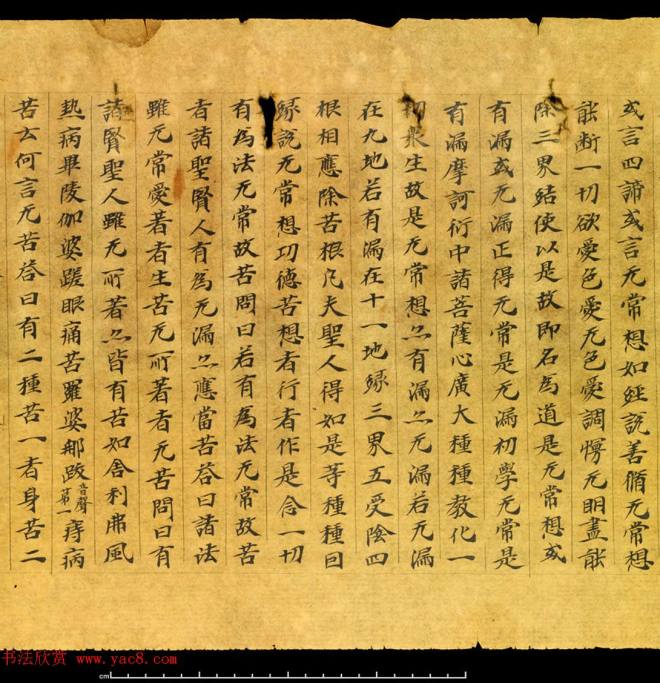 或言四諦或言无常想如經說善脩无常想
能断一切欲愛色愛无色愛調慢无明盡能
除三界結使以是故即名為道是无常想或
有漏或无漏正得无常是无漏初學无常是
有漏摩訶衍中諸菩薩心廣大種種教化一
切衆生故是无常想亦有漏亦无漏若无漏
在九地若有漏在十一地緣三界五受陰四
根相應除苦根凡夫聖人得如是等種種回
緣說无常想功德苦想者行者作是念一切
有為法无常故苦問曰若有為法无常故苦
者諸聖賢人有為无漏亦應當苦荅曰諸法
雖无常愛著者生苦无所著者无苦問曰有
諸賢聖人雖无所著亦皆有苦如舍利弗風
熱病畢陵伽婆蹉眼痛苦羅婆那跋音聲第一痔病
苦云何言无苦荅曰有二種苦一者身苦二
书法欣赏 www.yac8.com
cm